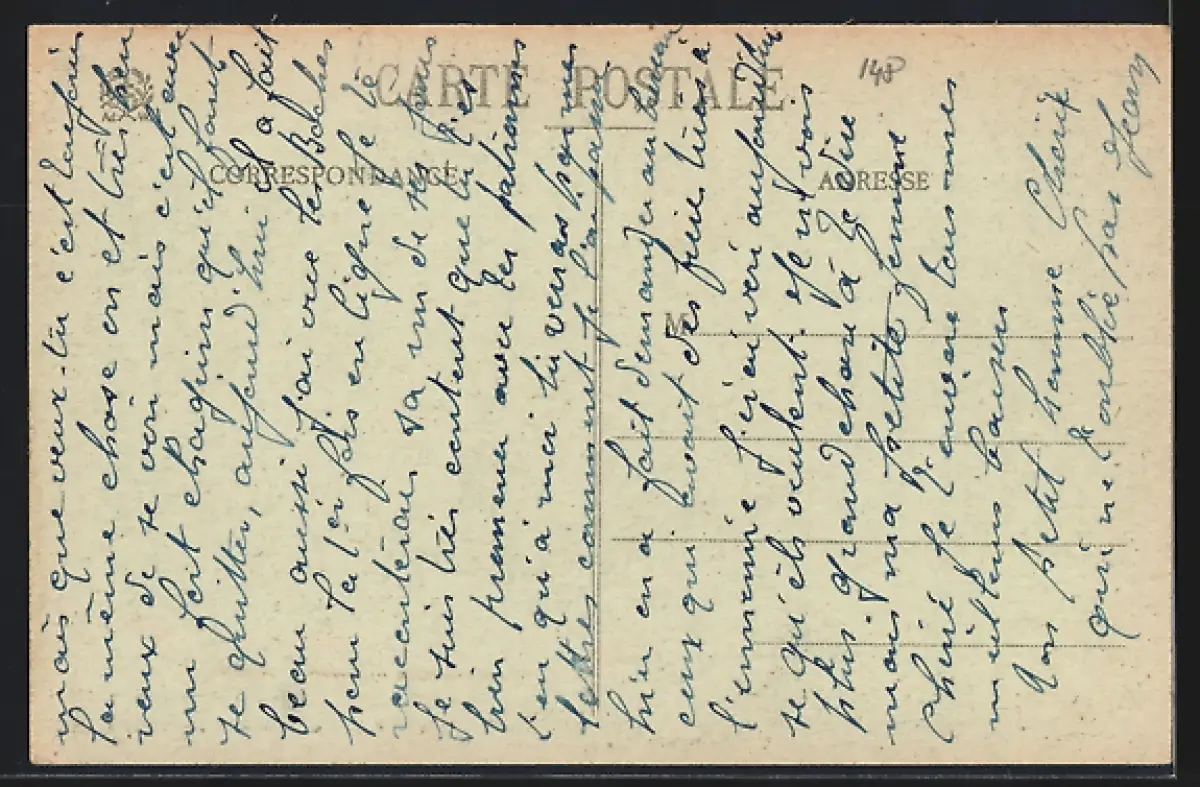 CARTE POSTALE
148
CORRESPONDANCE
ADRESSE
M
mais que veux-tu c'est toujours
la même chose on et très heu
reux de se voir mais c'est avec
un fort chagrin qu'il faut
se quitter, aujourd'hui il a fait
beau aussi j'ai vue les Boches
pour la 1er fois en ligne je te
raconterais sa un de ses jours
je suis très content que tu t'es
bien promener avec les patrons
qu'à moi tu verras sur mes
lettres comment je
hier on a fait demander au
ceux qui avait des
l'ennemie j'en veri aujourd'hui
se qu'ils veulent. Je n'y vois
plus grand chose à te dire
mais ma petite femme
chérie je t'envoie tous mes
meilleurs baisers
Ton petit homme Cherie
qui ne t'oublie pas Jean